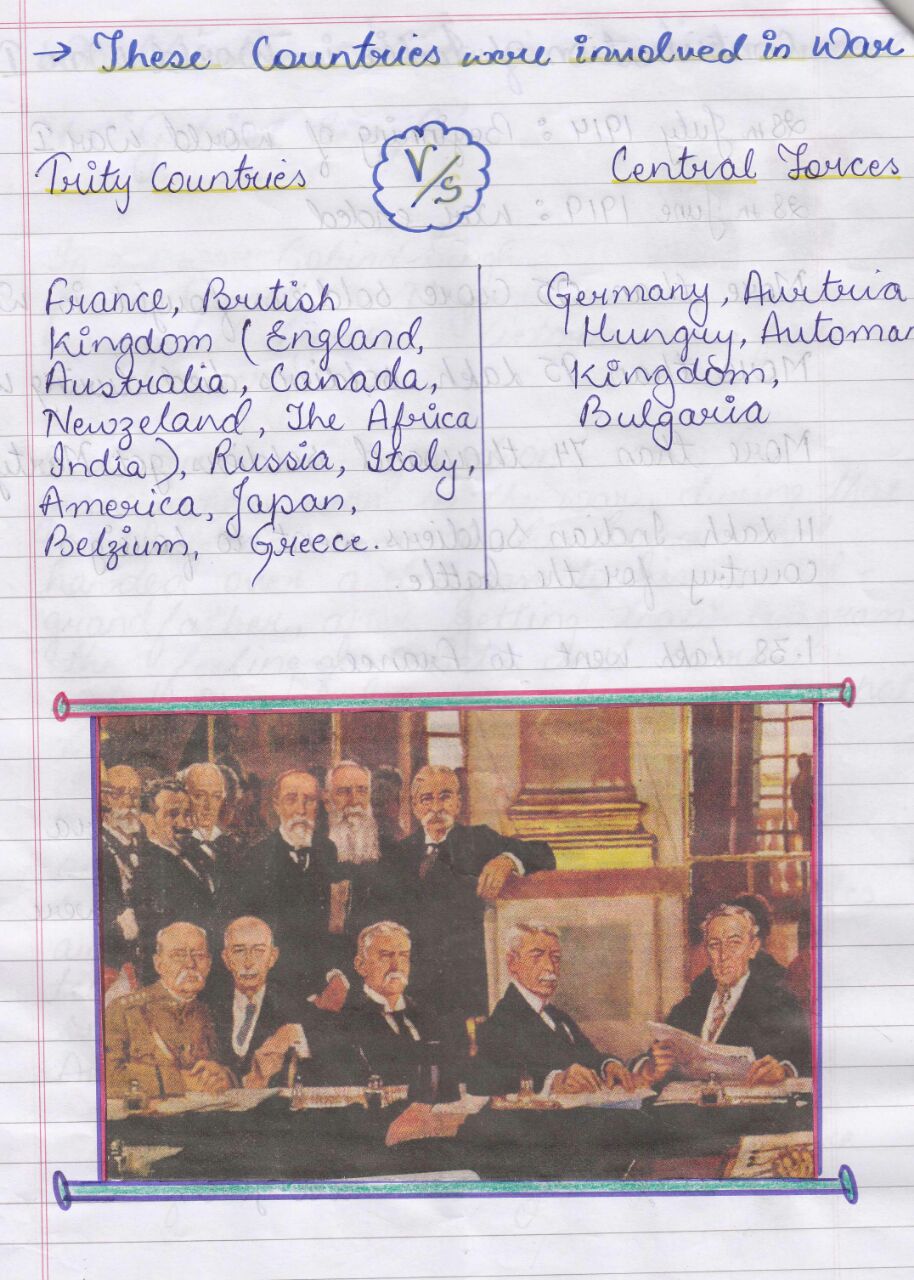 → These Countries were involved in War
Trity Countries V/s Central Forces
France, British
Kingdom (England,
Australia, Canada,
Newzeland, The Africa
India), Russia, Italy,
America, Japan,
Belzium, Greece.
Germany, Aurtria
Hungry, Automan
Kingdom,
Bulgaria